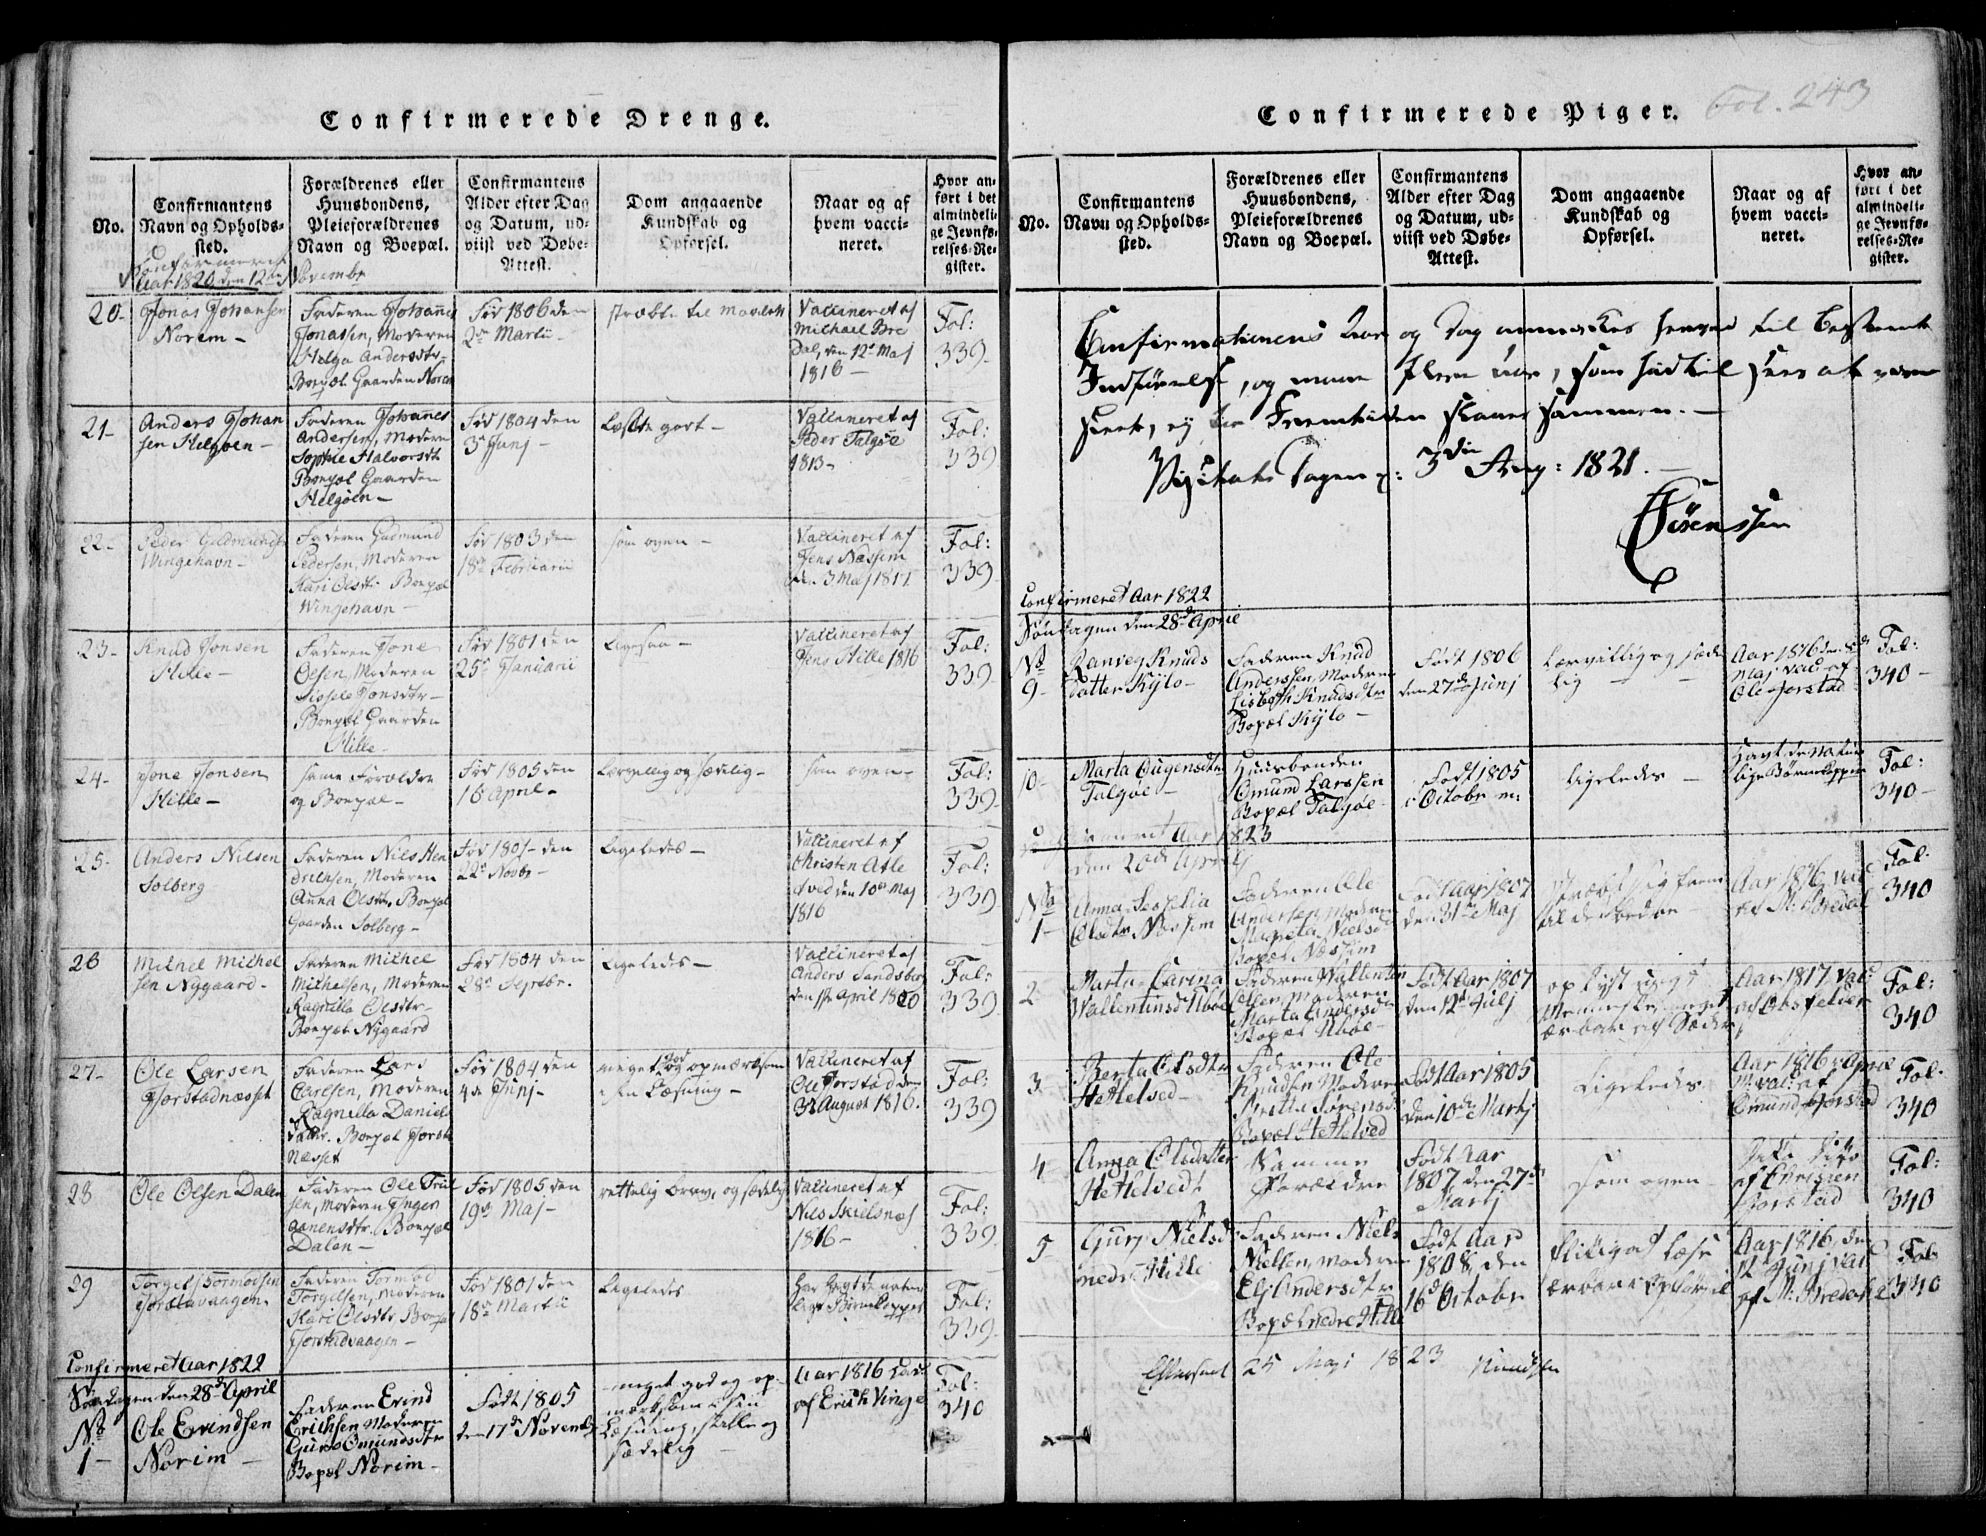 Confirmerede Drenge.
No.
Confirmantens
Navn og Opholds-
sted.
Forældrenes eller
Huusbondens,
Pleieforældrenes
Navn og Boepæl.
Confirmantens
Alder efter Dag
og Datum, ud-
viist ved Døbe-
Attest.
Dom angaaende
Kundskab og
Opførsel.
Naar og af
hvem vacci-
neret.
Hvor an-
ført i det
almindeli-
ge Jevnfø-
relses-Re-
gister.
Confirmeret
Aar 1820 den 12te Novembr
20-
Jonas Johansen
Norem -
Faderen Johannes
Jonasen, Moderen
Helga Andersdtr
Boepæl Gaarden Norem
Fød 1806 den
2den Martii
Vaccineret af
Michael Bre
Dal, den 12te Maj
1816 -
Fol:
339-
21-
Anders Johan
sen Helgøen -
Faderen Johanes
Andersen, Moderen
Sophie Halvorsdtr
Boepæl Gaarden
Helgøen -
Fød 1804 den
3de Junj -
Læste godt -
Vaccineret af
Peder Talgøe
1813-
Fol:
339
22-
Peder Gudmundsen
Wingehavn -
Faderen Gudmund
Pedersen, Moderen
Kari Olsdtr Boepæl
Wingehavn -
Fød 1803 den
18de Februarii
som oven -
Vaccineret af
Jens Næssem
den 3 Maj 1817
Fol:
339
23-
Knud Jonsen
Hille -
Faderen Jone
Olsen, Moderen
Sissele Tønsdtr -
Boepæl Gaarden
Hille -
Fød 1801 den
25de Januarii
Ligesaa -
Vaccineret af
Jens Hille 1816
Fol:
339
24-
Jone Jonsen
Hille -
samme Forældre
og Boepæl -
Fød 1805 den
16 April -
Lærvillig og sædelig -
som oven -
Fol:
339-
25-
Anders Nilsen
Solberg
Faderen Nils Hen
drichsen, Moderen
Anna Olsdtr, Boepæl
Gaarden Solberg -
22de Novbr -
Ligeledes -
Vaccineret af
Christen Asle
den 10de Maj
1816
Fol:
339
26
Michel Michel
sen Nygaard -
Faderen Michel
Michelsen, Moderen
Ragnilla Olsdtr -
Boepæl Nygaard
Fød 1804 den
28de Septbr.
Ligeledes -
Vaccineret af
Anders Sandsberg
April 1820
Fol:
339
27-
Ole Larsen
Fjorstadnæsset
Faderen Lars
Carlsen, Moderen
Ragnilla Daniels
datter. Boepæl
Næsset
Fød 1804 den
4de Junj -
meget god opmærksom
i sin Læsning -
Vaccineret af
Ole Jorstad den
August 1816.
Fol:
339
28
Ole Olsen Dalen
Faderen Ole
sen, Moderen Inger
Boepæl
Dalen -
Fød 1805 den
19de Maj -
og sædelig
Vaccineret af
Nils Skielsnæs
1816 -
Fol:
339
29
Torgels Tormodsen
Fjorstavaagen
Faderen Tormod
Torgelsen, Moderen
Kari Olsdtr Boepæl
Fjorstadvaagen -
Fød 1801 den
18de Martii
Ligeledes
har havt de natur
lige Børnekopper
Fol:
339
Confirmeret Aar 1822
Søndagen den 28de April
No
1 -
Ole Evindsen
Norim -
Faderen Evind
Erichsen Moderen
Guro Omundsdtr
Bopæl Norim -
Født 1805
den 17de Novemb
meget god og op-
mærksom i sin
Læsning, stille og
sædelig -
Aar 1816
af Erich Vinge
Fol:
340
Confirmerede Piger.
Fol. 243
No.
Confirmantens
Navn og Opholds-
sted.
Forældrenes eller
Huusbondens,
Pleieforældrenes
Navn og Boepæl.
Confirmantens
Alder efter Dag
og Datum, ud-
viist ved Døbe-
Attest.
Dom angaaende
Kundskab og
Opførsel.
Naar og af
hvem vacci-
neret.
Hvor an-
ført i det
almindeli-
ge Jevnfø-
relses-Re-
gister.
Confirmationens Aar og Dag anmærkes herved til bestemt
Indførelse, og maae flere Aar, som hidtil sees at være
skeet, ej for Fremtiden skrives sammen. -
Visitats Dagen d: 3die Aug: 1821. -
Sørenssen
Confirmeret Aar 1822
Søndagen den 28de April
No
9-
Ranveg Knuds
datter Kylo -
Faderen Knud
Anderssen, Moderen
Lisbeth Knudsdtr
Bopæl Kylo -
Født 1806
den 27de Junj
Lærvillig og sæde
lig -
Aar 1816
Maj vacc af
Ole Jorstad
Fol:
340-
10-
Marta Eugensdtr
Talgøe -
Huusbonden
Omund Larssen
Bopæl Talgøe -
Født 1805
i Octobr m:
Ligeledes -
Havt de natur
lige Børnekopper
Fol:
340-
Confirmeret Aar 1823
den 20de Aprilj
No
1 -
Anna
Olsdtr Næssem
Faderen Ole
Andersen, Moderen
Margreta Nielsd
Bopæl Næssim
Født Aar 1807
den 31te Maj
Aar 1816 vacc
af M: Bredal
Fol:
340
2
Marta Carina
Wallentinsd Uboe
Faderen Wallentin
Moderen
Marta Andersd
Bopæl Uboe -
Født Aar 1807
den 12te Julj
oplyst ungt
Menneske, meget
ærbar af Sæder
Aar 1817 vacc
Fol:
340
3
Berta Olsdtr
Hetlelved -
Faderen Ole
Knudsen Moderen
Britta Sørensd
Bopæl Hetlelved
Født Aar 1805
den 10de Martj
Ligeledes
Aar 1816 i April
M: vac: af
Omund Jorstad
Fol.
340
4
Anna Olsdatter
Hetlelved
Samme
Forældre
Født Aar
1807 den 27de
Martj
som oven
dito dito
af Christen
Jorstad
Fol:
340
5
Guri Nielsd
nedre Hille
Faderen Niels
Nielsen, Moderen
Eli Andersdtr
Bopæl nedre Hille
Født Aar
1808, den
16de Octobr
Aar 1816 den
12te Junj vac
af M: Bredahl
Fol
340
Efterseet 25 Maji 1823 Knudsen